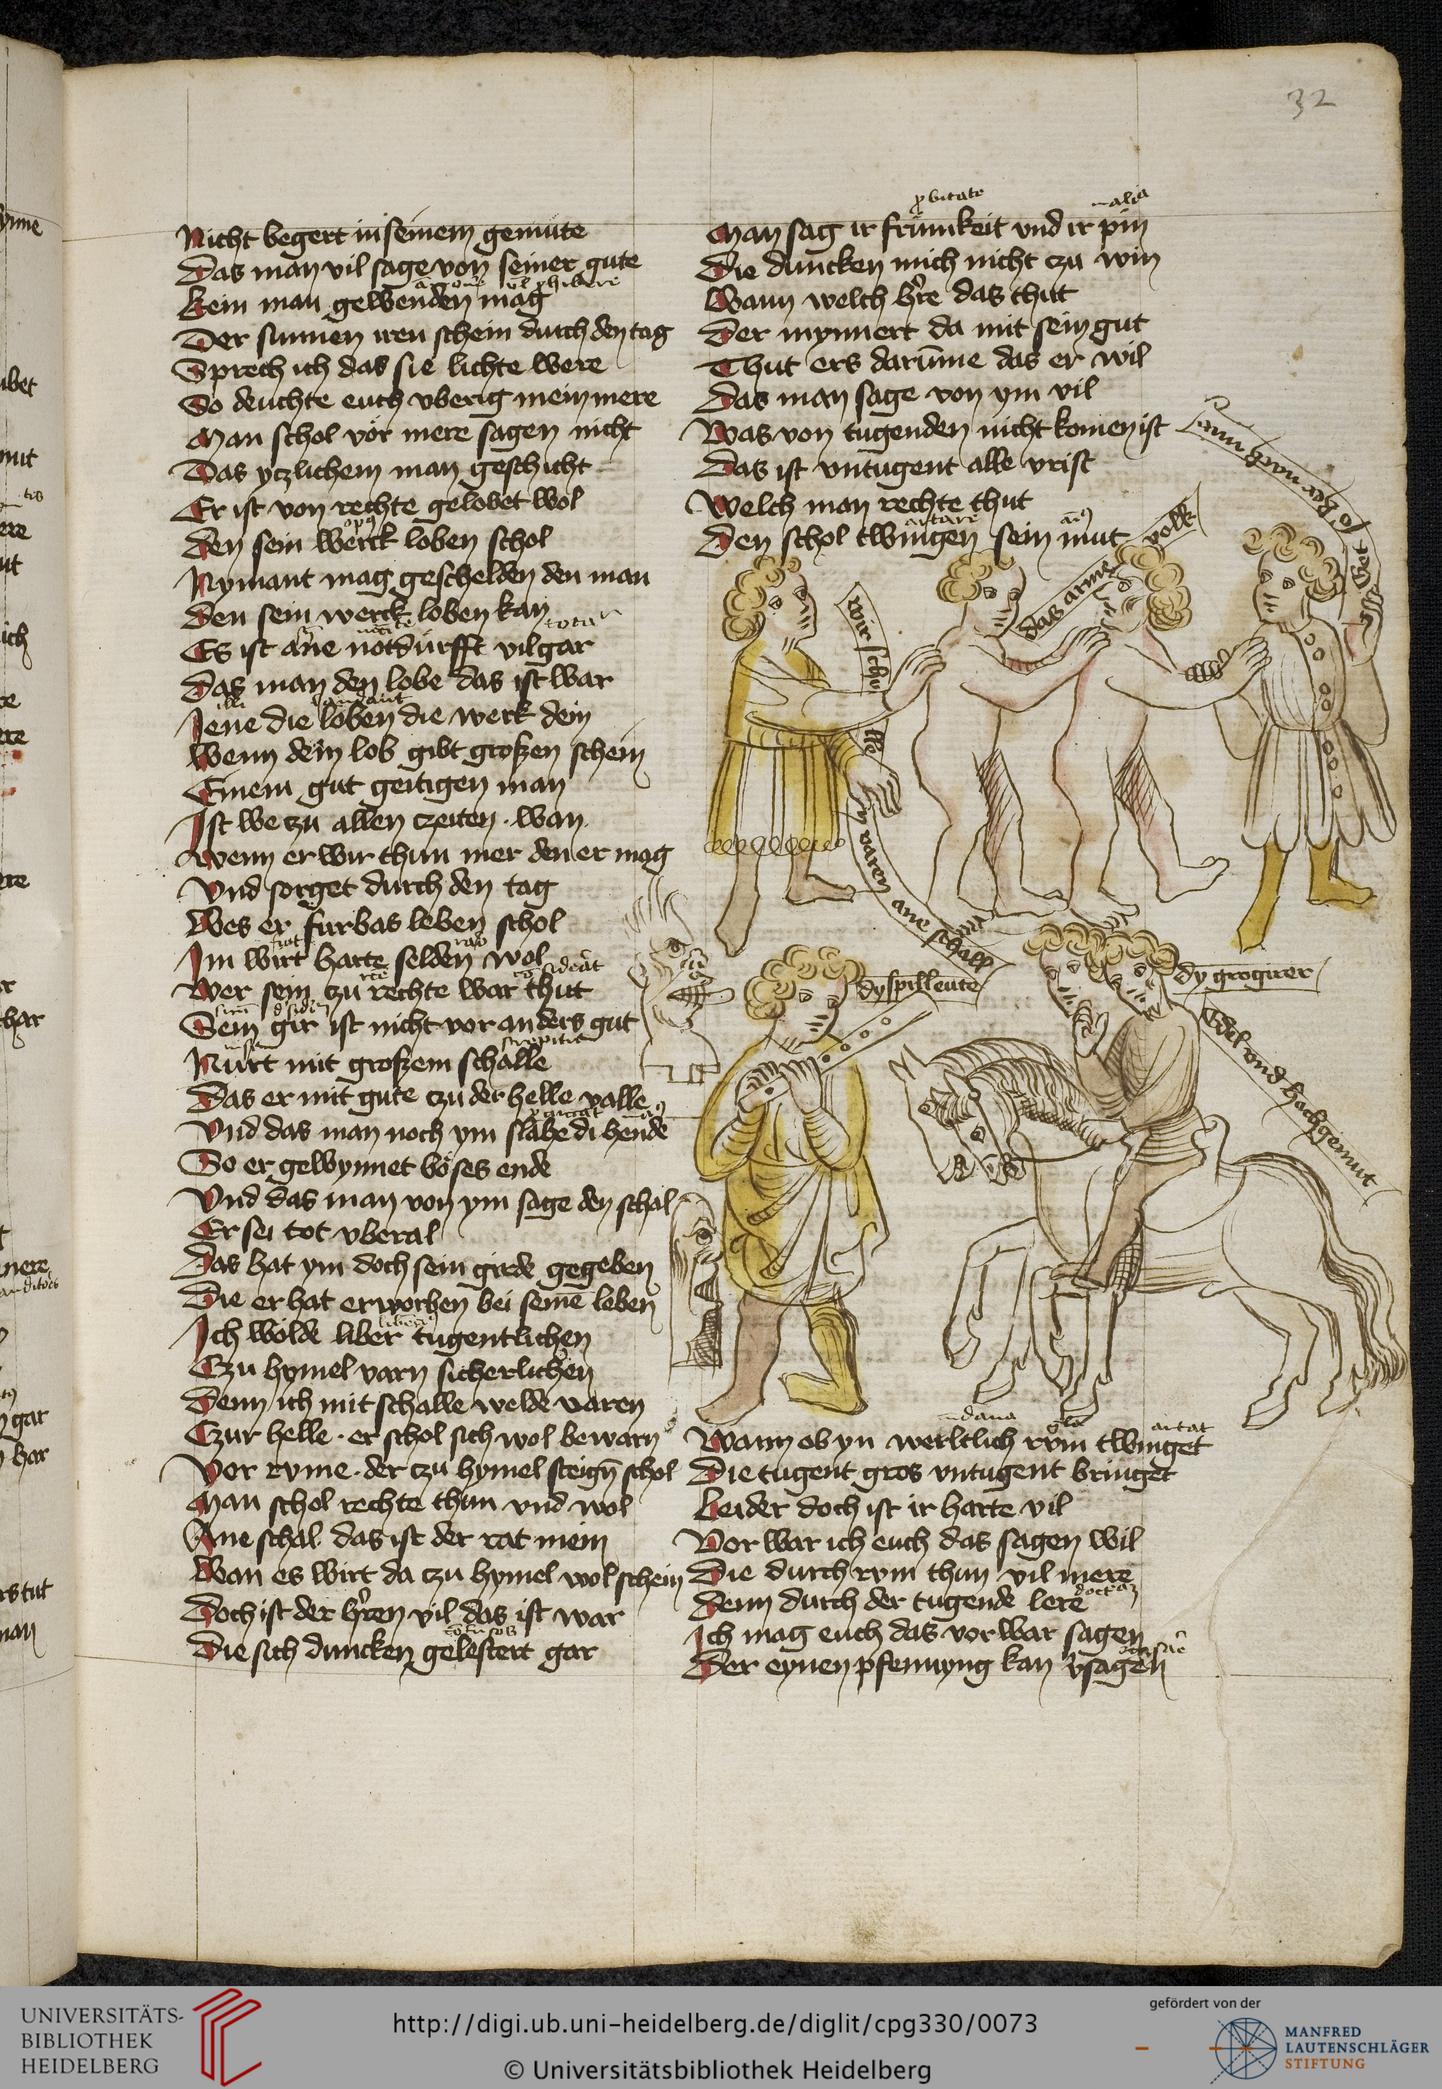 32
Nicht begert in seinem gemute
Das man vil sage von seiner gute
Kein man gewenden mag
Der sunnen iren schein durch den tag
Sprech ich das sie lichte were
So deuchte euch vberig mein mere
Man schol vor mere sagen nicht
Das yczlichem man geschicht
Er ist von rechte gelobet wol
Den sein werck loben schol
Nymant mag geschelden den man
Den sein werck loben kan
Es ist ane notdurfft vil gar
Das man den lobe das ist war
Jene die loben die werk dein
Wenn dein lob gibt großen schein
Einem gut geitigen man
Ist we czu allen czeiten wan
Wenn er wir thun mer den er mag
Vnd sorget durch den tag
Wes er furbas leben schol
Im wirt harte selden wol
Wer sein czu rechte war thut
Sein gir ist nicht vor anders gut
Nurt mit großem schalle
Das er mit gute czu der helle valle
Vnd das man noch ym slahe di hende
So er gewynnet böses ende
Vnd das man von ym sage den schal
Er sei tot vberal
Das hat ym doch sein girde gegeben
Die er hat erworben bei seinē leben
Ich wolde liber tugentlichen
Czu hymel varn sicherlichen
Denn ich mit schalle welde varen
Czur helle · er schol sich wol bewarn
Vor ryme · der czu hymel steign schol
Man schol rechte thun vnd wol
Ane schal das ist der rat mein
Wan es wirt da czu hymel wol schein
Doch ist der hren vil das ist war
Die sich duncken gelestert gar
Man sag ir frumkeit vnd ir pin
Die duncken mich nicht czu win
Wann welch hre das thut
Der mynnert da mit sein gut
Thut ers darūme das er wil
Das man sage von ym vil
Was von tugenden nicht komen ist
Das ist vntugent alle vrist
Welch man rechte thut
Den schol twingen sein mut
das arme volk
wir schullen varen ane schall
dy spilleute
dy grogirer
Edel vnd hochgemut
Wann ob yn werltlich rym twinget
Die tugent gros vntugent bringet
Leider doch ist ir harte vil
Vor war ich euch das sagen wil
Die durch rym thun vil mere
Denn durch der tugende lere
Ich mag euch das vor war sagen
Der eynen pfennyng kan vsagen
UNIVERSITÄTS-
BIBLIOTHEK
HEIDELBERG
http://digi.ub.uni-heidelberg.de/diglit/cpg330/0073
© Universitätsbibliothek Heidelberg
gefördert von der
MANFRED
LAUTENSCHLÄGER
STIFTUNG